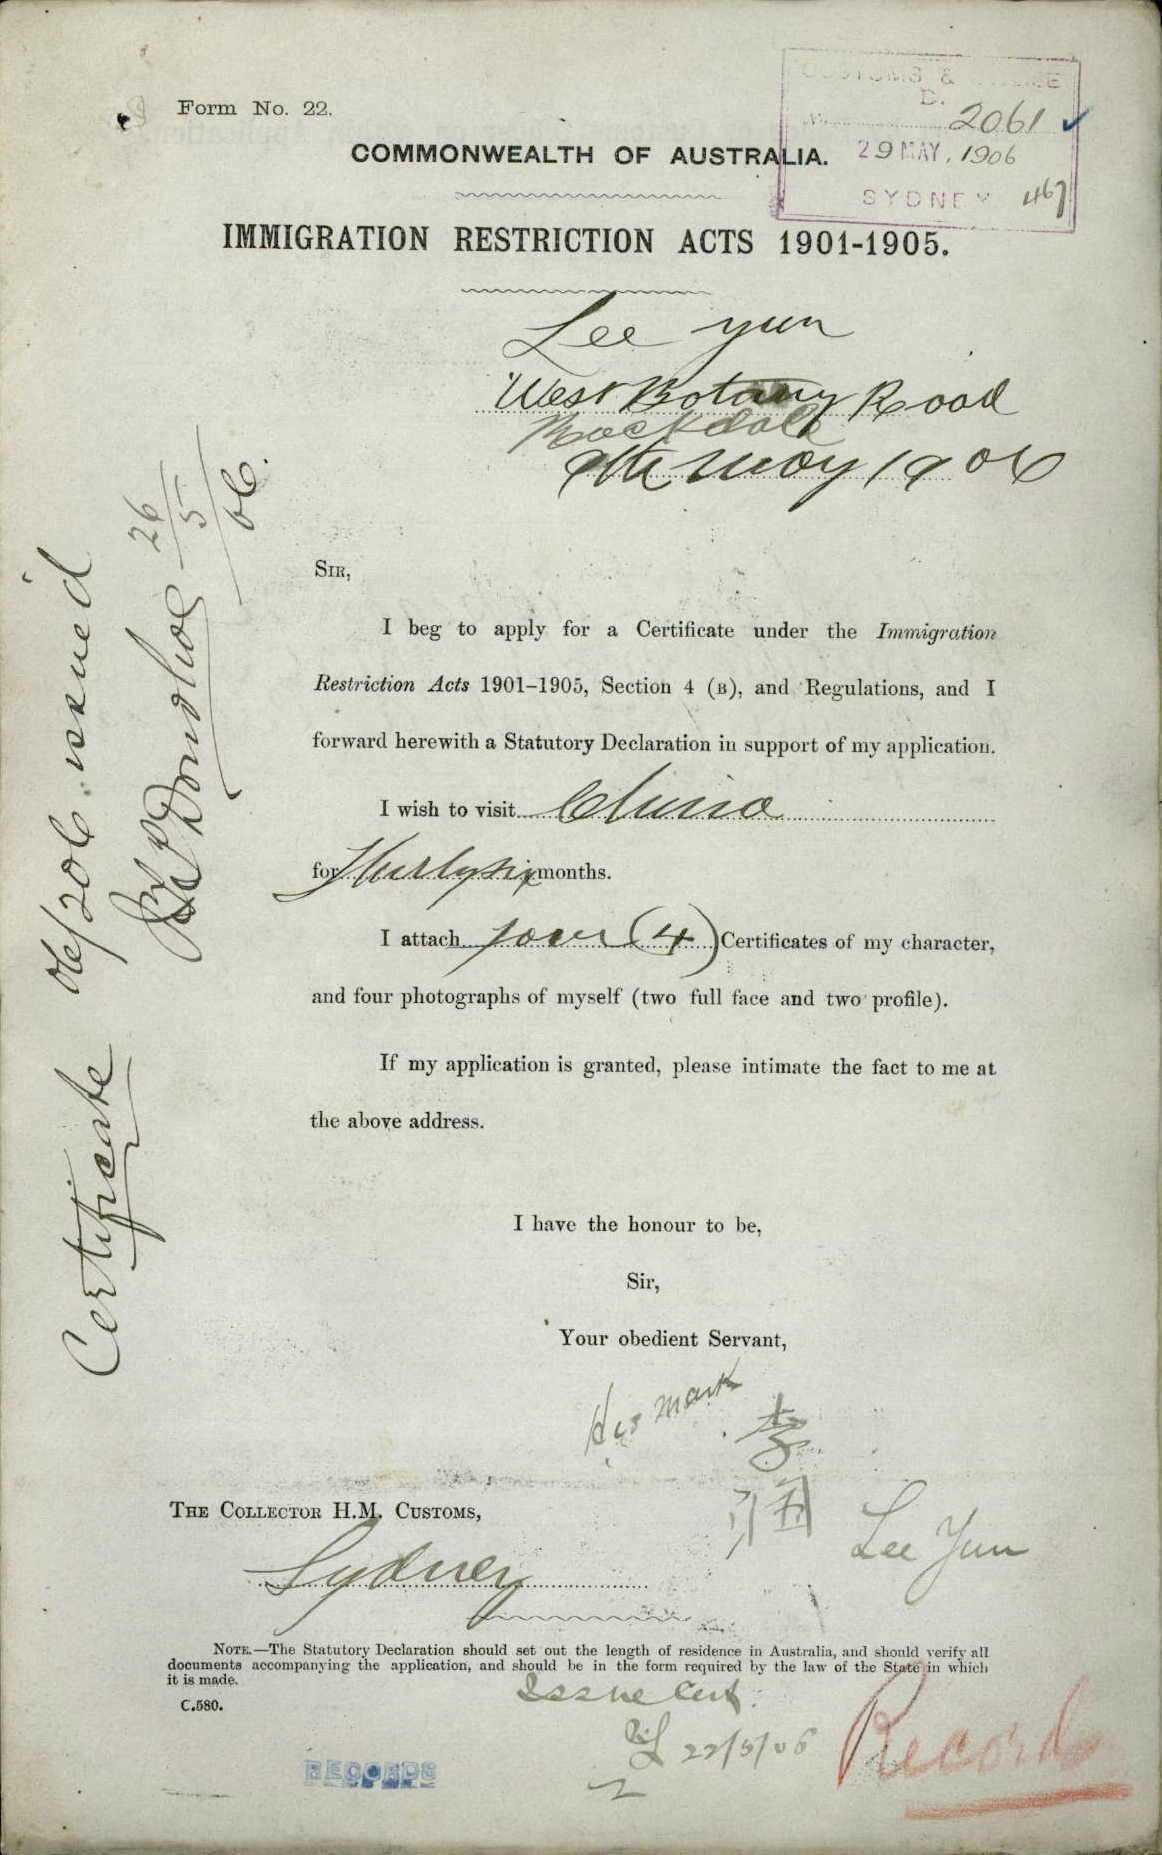 Form No. 22.
CUSTOMS &
D.
2061
29 MAY. 1906
SYDNEY 467
COMMONWEALTH OF AUSTRALIA.
IMMIGRATION RESTRICTION ACTS 1901-1905.
Lee Yun
West Botany Road
Rockdale
9th May 1906
SIR,
I beg to apply for a Certificate under the Immigration
Restriction Acts 1901-1905, Section 4 (B), and Regulations, and I
forward herewith a Statutory Declaration in support of my application.
I wish to visit China
for Thirty six months.
I attach four (4) Certificates of my character,
and four photographs of myself (two full face and two profile).
If my application is granted, please intimate the fact to me at
the above address.
I have the honour to be,
Sir,
Your obedient Servant,
His mark
李
Lee Yun
THE COLLECTOR H.M. CUSTOMS,
Sydney
NOTE.—The Statutory Declaration should set out the length of residence in Australia, and should verify all
documents accompanying the application, and should be in the form required by the law of the State in which
it is made.
C.580.
Issue Cert
22/5/06
RECORDS
Records
Certificate 06/206 issued
Donohoe 26/5/06.